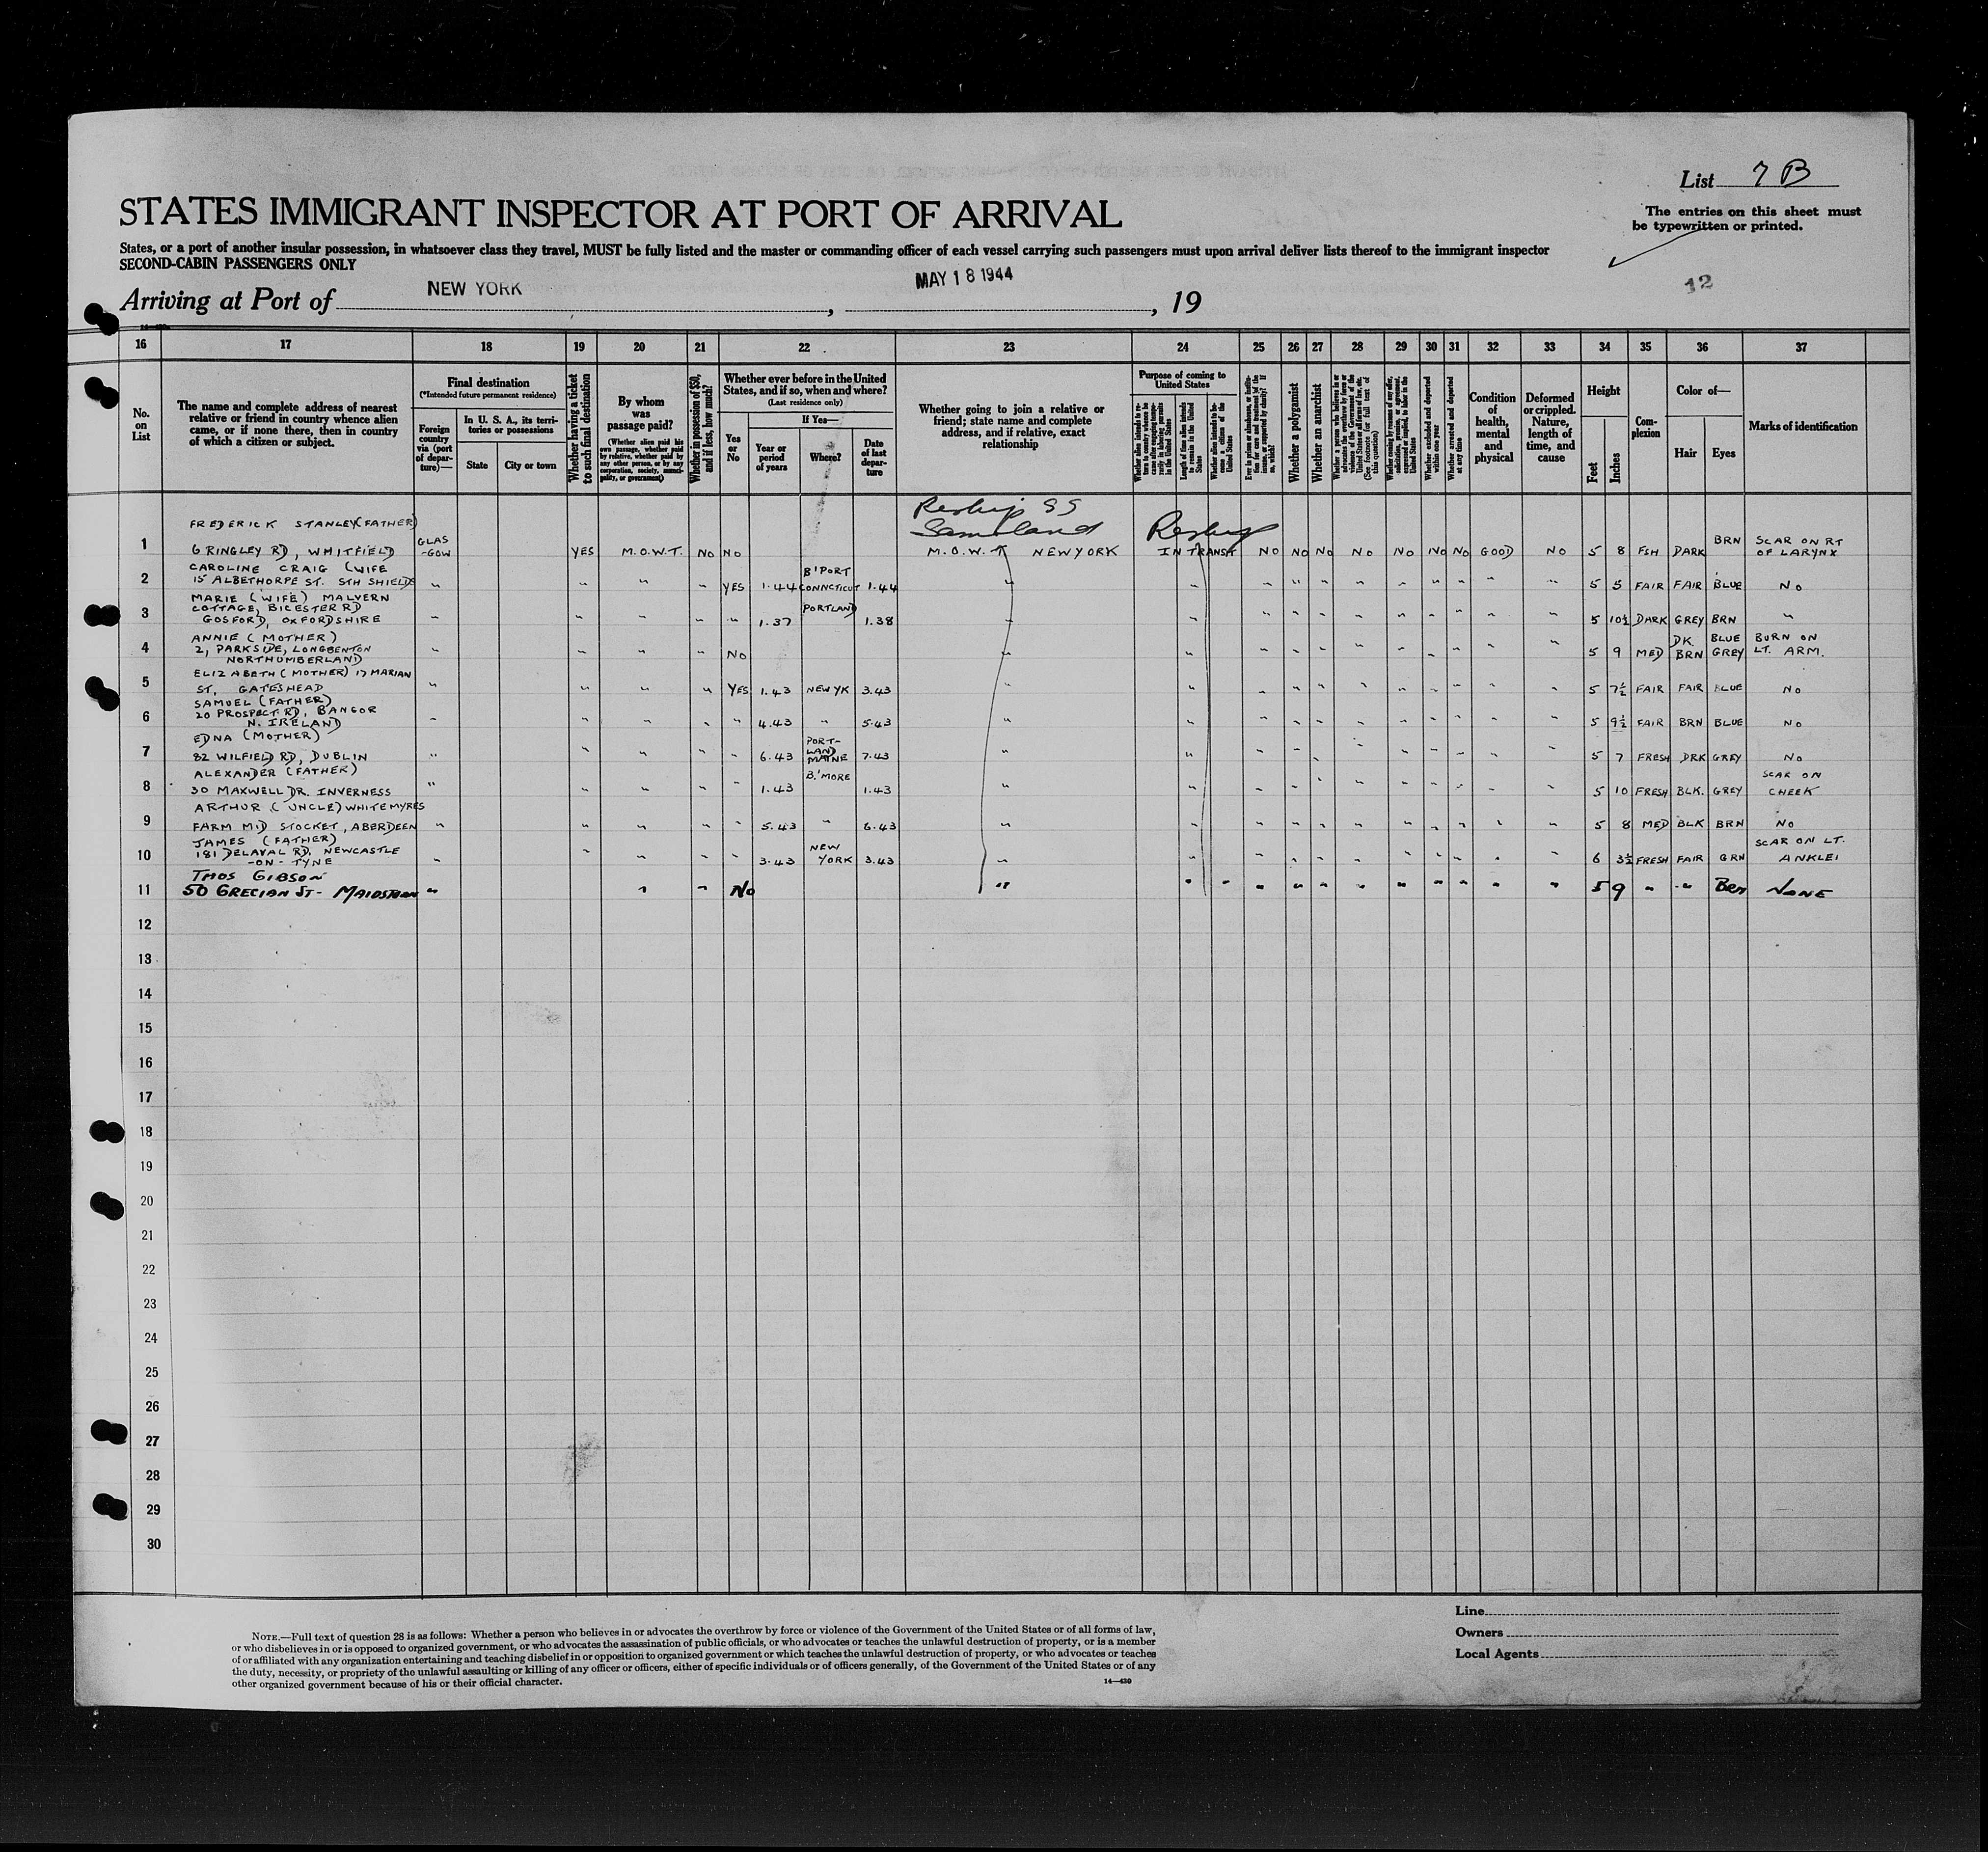 List 7 B
STATES IMMIGRANT INSPECTOR AT PORT OF ARRIVAL
The entries on this sheet must
be typewritten or printed.
States, or a port of another insular possession, in whatsoever class they travel, MUST be fully listed and the master or commanding officer of each vessel carrying such passengers must upon arrival deliver lists thereof to the immigrant inspector
SECOND-CABIN PASSENGERS ONLY
12
Arriving at Port of NEW YORK, MAY 18 1944, 19
16 17 18 19 20 21 22 23 24 25 26 27 28 29 30 31 32 33 34 35 36 37
No. on List
The name and complete address of nearest relative or friend in country whence alien came, or if none there, then in country of which a citizen or subject.
Final destination
(*Intended future permanent residence)
Foreign country via (port of departure)—
In U. S. A., its territories or possessions
State
City or town
Whether having a ticket to such final destination
By whom was passage paid?
(Whether alien paid his own passage, whether paid by relative, whether paid by any other person, or by any corporation, society, municipality, or government)
Whether in possession of $50, and if less, how much?
Whether ever before in the United States, and if so, when and where?
(Last residence only)
Yes or No
If Yes—
Year or period of years
Where?
Date of last departure
Whether going to join a relative or friend; state name and complete address, and if relative, exact relationship
Purpose of coming to United States
Length of time alien intends to remain in the United States
Whether alien intends to become a citizen of the United States
Whether a polygamist
Whether an anarchist
Whether excluded and deported within one year
Whether arrested and deported at any time
Condition of health, mental and physical
Deformed or crippled. Nature, length of time, and cause
Height
Feet
Inches
Complexion
Color of—
Hair
Eyes
Marks of identification
Reship SS
Samland Reship
FREDERICK STANLEY (FATHER)
1 6 RINGLEY RD, WHITFIELD GLAS-GOW YES M.O.W.T. NO NO M.O.W.T NEW YORK IN TRANSIT NO NO NO NO NO NO NO GOOD NO 5 8 FSH DARK BRN SCAR ON RT OF LARYNX
CAROLINE CRAIG (WIFE
2 15 ALBETHORPE ST. STH SHIELDS " " " " YES 1.44 B'PORT CONNCTICUT 1.44 " " " " " " " " " " " 5 5 FAIR FAIR BLUE NO
MARIE (WIFE) MALVERN
3 COTTAGE, BICESTER RD
GOSFORD, OXFORDSHIRE " " " " " 1.37 PORTLAND 1.38 " " " " " " " " " " " 5 10½ DARK GREY BRN "
ANNIE (MOTHER)
4 2, PARKSIDE, LONGBENTON
NORTHUMBERLAND) " " " " NO " " " " " " " " " " " 5 9 MED DK. BRN BLUE GREY BURN ON LT. ARM.
ELIZABETH (MOTHER) 17 MARIAN
5 ST, GATESHEAD " " " " YES 1.43 NEW YK 3.43 " " " " " " " " " " " 5 7½ FAIR FAIR BLUE NO
SAMUEL (FATHER)
6 20 PROSPECT RD, BANGOR
N. IRELAND) " " " " " 4.43 " 5.43 " " " " " " " " " " " 5 9½ FAIR BRN BLUE NO
EDNA (MOTHER)
7 82 WILFIELD RD, DUBLIN " " " " " 6.43 PORT-LAND MAINE 7.43 " " " " " " " " " " " 5 7 FRESH DRK GREY NO
ALEXANDER (FATHER)
8 30 MAXWELL DR. INVERNESS " " " " " 1.43 B'MORE 1.43 " " " " " " " " " " " 5 10 FRESH BLK. GREY SCAR ON CHEEK
ARTHUR (UNCLE) WHITEMYRES
9 FARM MID STOCKET, ABERDEEN " " " " " 5.43 " 6.43 " " " " " " " " " " " 5 8 MED BLK BRN NO
JAMES (FATHER)
10 181 DELAVAL RD, NEWCASTLE
-ON-TYNE " " " " " 3.43 NEW YORK 3.43 " " " " " " " " " " " 6 3½ FRESH FAIR GRN SCAR ON LT. ANKLE
THOS GIBSON
11 50 GRECIAN ST- MAIDSTONE " " " NO " " " " " " " " " " " " 5 9 " " BRN NONE
12
13
14
15
16
17
18
19
20
21
22
23
24
25
26
27
28
29
30
NOTE.—Full text of question 28 is as follows: Whether a person who believes in or advocates the overthrow by force or violence of the Government of the United States or of all forms of law,
or who disbelieves in or is opposed to organized government, or who advocates the assassination of public officials, or who advocates or teaches the unlawful destruction of property, or is a member
of or affiliated with any organization entertaining and teaching disbelief in or opposition to organized government or which teaches the unlawful destruction of property, or who advocates or teaches
the duty, necessity, or propriety of the unlawful assaulting or killing of any officer or officers, either of specific individuals or of officers generally, of the Government of the United States or of any
other organized government because of his or their official character.
14—430
Line
Owners
Local Agents